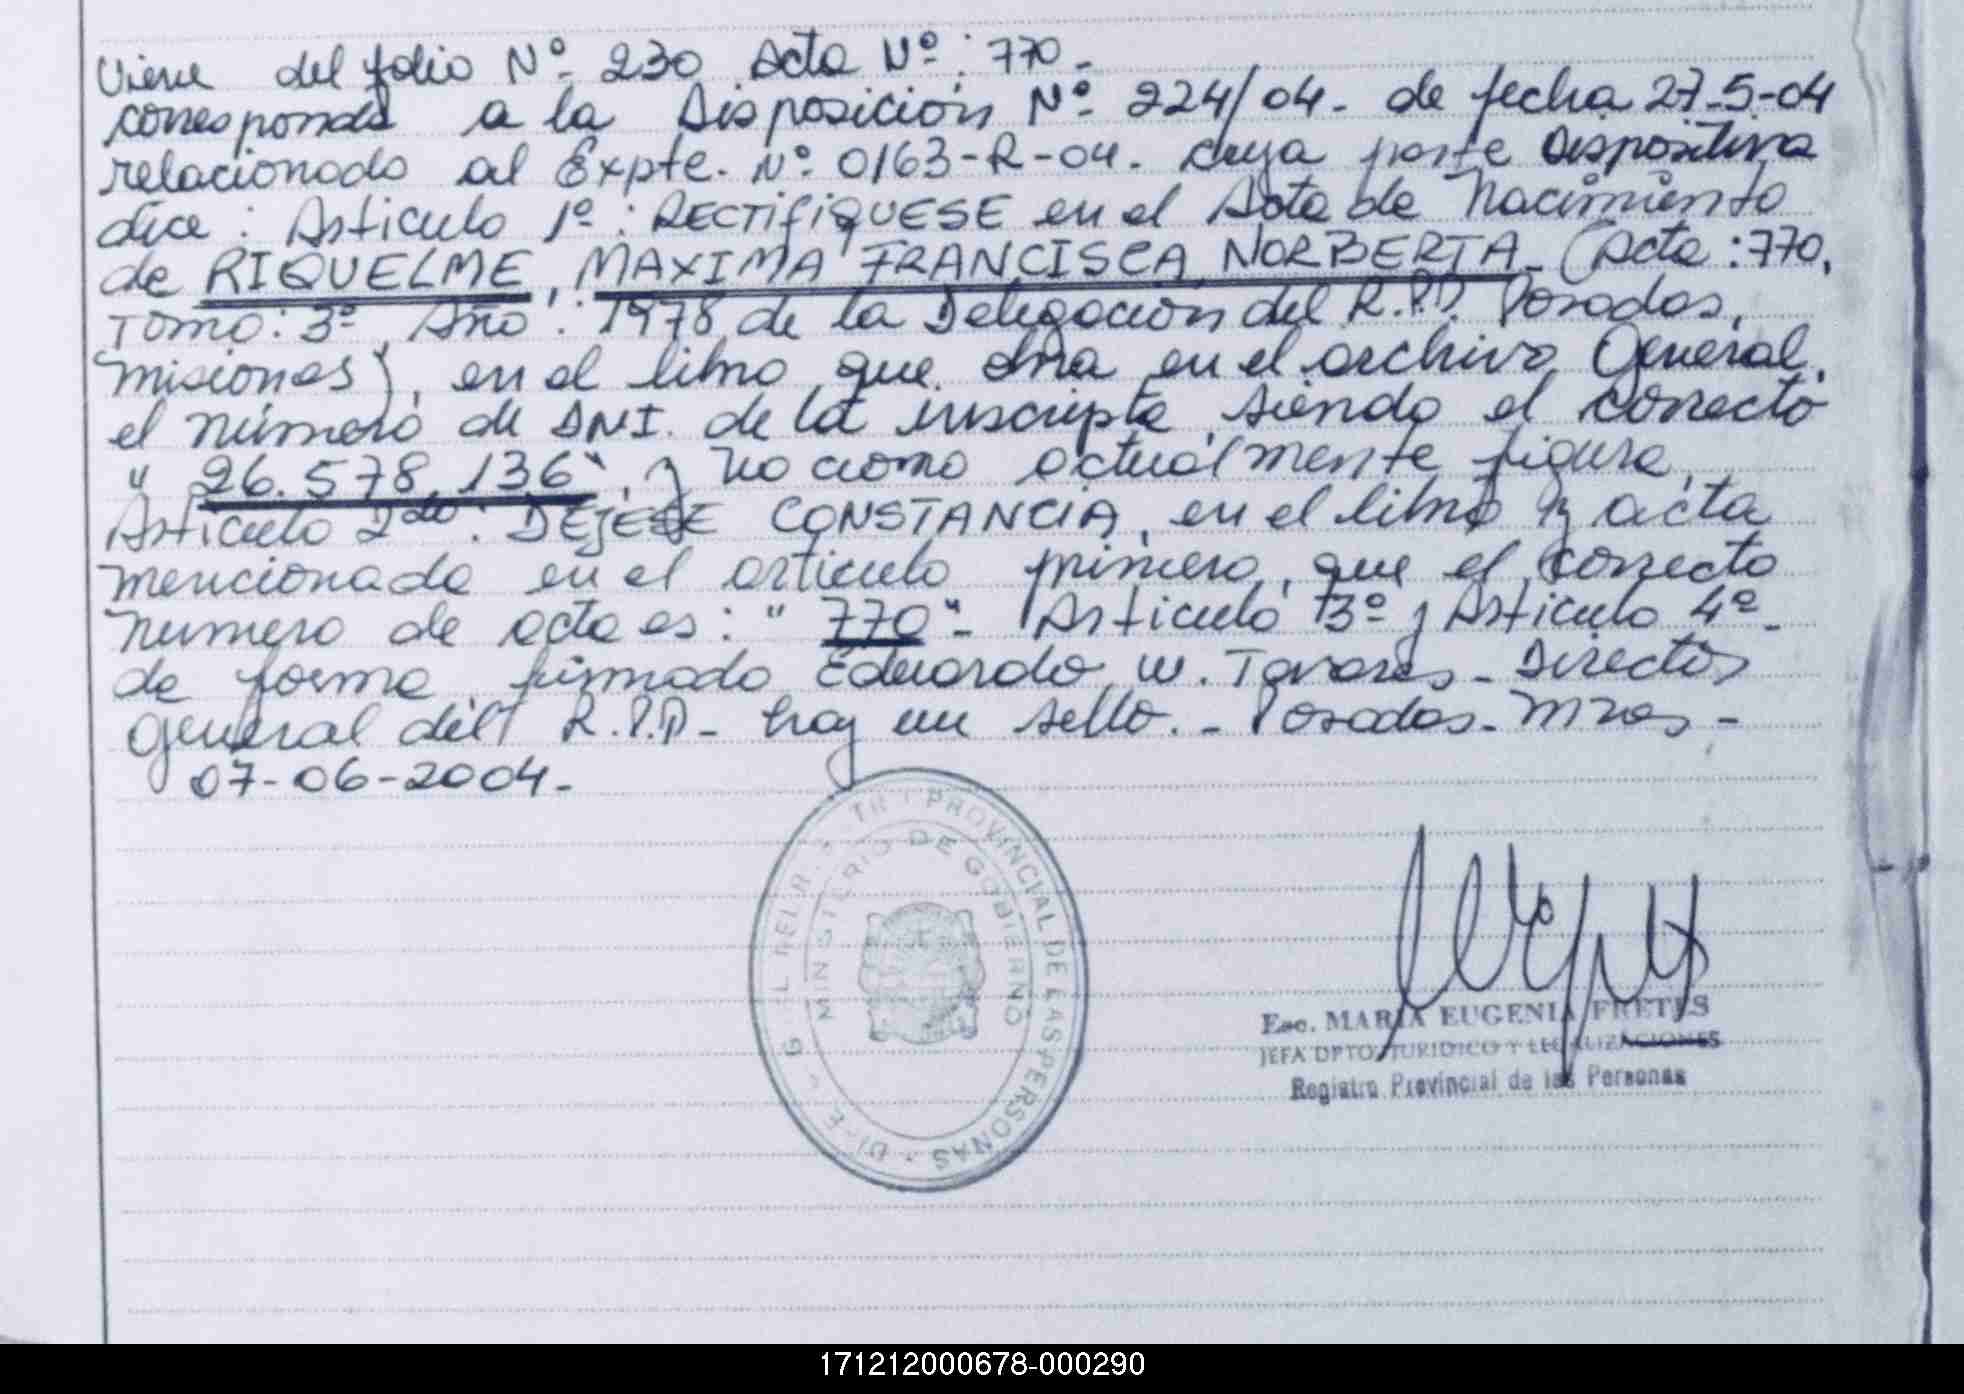 Viene del folio Nº 230 Acta Nº: 770-
corresponde a la Disposición Nº 224/04- de fecha 27-5-04
relacionado al Expte. Nº 0163-R-04. cuya parte Dispositiva
dice: Articulo 1º: RECTIFIQUESE en el Acta de Nacimiento
de RIQUELME, MAXIMA FRANCISCA NORBERTA- (Acta: 770,
Tomo: 3º, Año: 1978 de la Delegación del R.P.P. Posadas,
Misiones), en el libro que obra en el archivo General,
el número de DNI. de la inscripta, siendo el correcto
" 26.578.136", y no como actualmente figura,
Articulo 2do: DEJESE CONSTANCIA, en el libro y acta
mencionado en el articulo primero, que el correcto
numero de acta es: "770"- Articulo 3º y Articulo 4º-
de forma, firmado Eduardo W. Tavares- Director
General del R.P.P- hay un sello.- Posadas- Mnes-
07-06-2004.-
PROVINCIAL DE LAS PERSONAS
MINISTERIO DE GOBIERNO
Esc. MARIA EUGENIA FRETES
JEFA DPTO. JURIDICO Y LEGALIZACIONES
Registro Provincial de las Personas
171212000678-000290